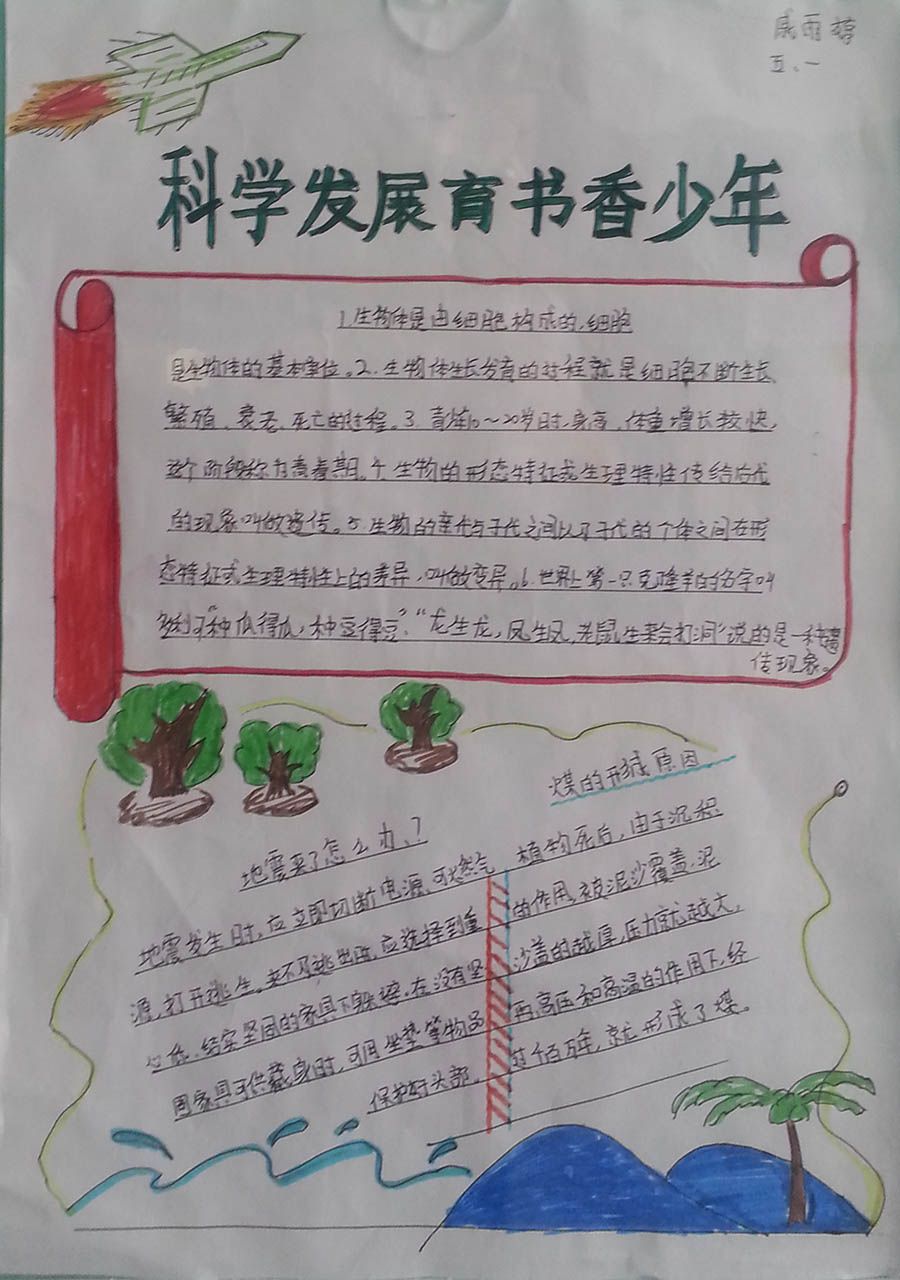 雨婷
五、一
科学发展育书香少年
1.生物体是由细胞构成的,细胞
是生物体的基本单位。2.生物体生长发育的过程就是细胞不断生长、
繁殖、衰老、死亡的过程。3.青年10~20岁时,身高、体重增长较快,
这个阶段称为青春期。4.生物的形态特征或生理特性传给后代
的现象叫做遗传。5.生物的亲代与子代之间以及子代的个体之间在形
态特征或生理特性上的差异,叫做变异。6.世界上第一只克隆羊的名字叫
多利。7.“种瓜得瓜,种豆得豆”、“龙生龙,凤生凤,老鼠生来会打洞”说的是一种遗
传现象。
地震来了怎么办?
地震发生时,应立即切断电源、可燃气
源,打开逃生。来不及逃出时,应选择到重
心低、结实坚固的家具下躲避。在没有坚
固家具可供藏身时,可用坐垫等物品
保护好头部。
煤的形成原因
植物死后,由于沉积
的作用,被泥沙覆盖,泥
沙盖的越厚,压力就越大,
再高压和高温的作用下,经
过千百万年,就形成了煤。